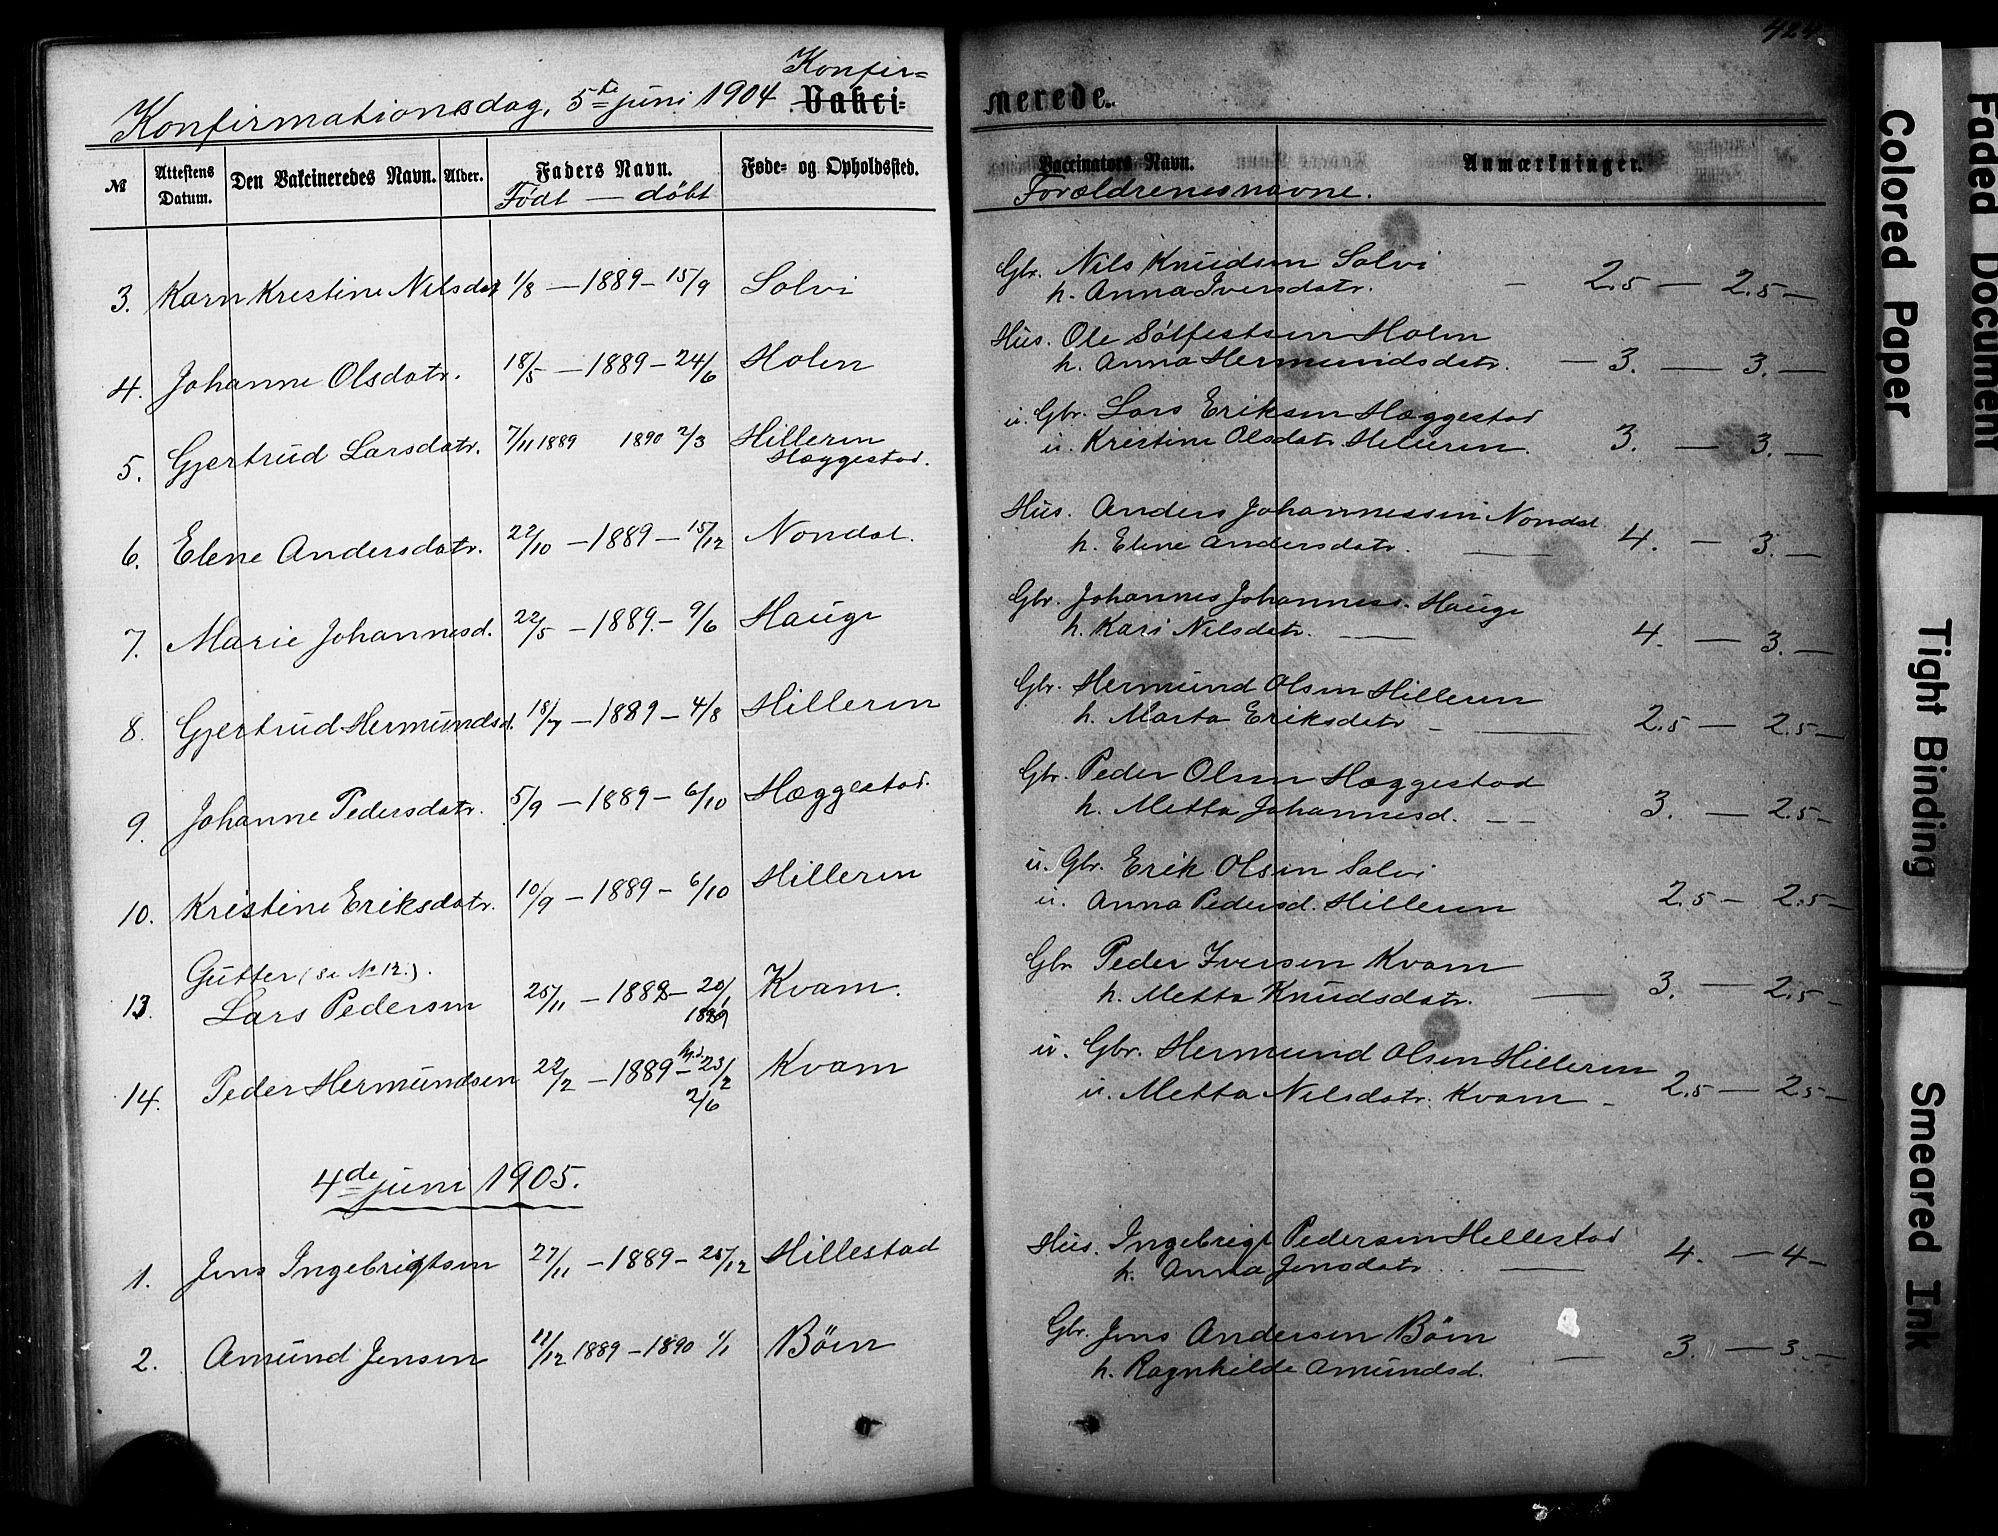 424
Konfirmationsdag, 5te juni 1904 Konfir=
Vakci= merede.
№ Attestens Datum. Den Vakcineredes Navn. Alder. Faders Navn. Føde- og Opholdssted. Vaccinators Navn. Anmærkninger.
Født — døbt Forældrenes navne.
3. Karn Kristine Nilsdatr 1/8 — 1889 — 15/9 Solvi Gbr. Nils Knudsen Solvi
h. Anna Iversdatr. — 2.5 — 2.5 —
4. Johanne Olsdatr. 18/5 — 1889 — 24/6 Holen Hus. Ole Sölfestsen Holen
h. Anna Hermundsdatr. — 3. — 3. —
5. Gjertrud Larsdatr. 7/11 1889 1890 2/3 Hilleren Hæggestad. u. Gbr. Lars Eriksen Hæggestad
u. Kristine Olsdatr Hilleren. 3. — 3. —
6. Elene Andersdatr. 22/10 — 1889 — 15/12 Nondal. Hus. Anders Johannessen Nondal
h. Elene Andersdatr. — 4. — 3. —
7. Marie Johannesd. 22/5 — 1889. — 9/6 Hauge Gbr. Johannes Johanness. Hauge
h. Kari Nilsdatr. — 4. — 3. —
8. Gjertrud Hermundsd. 18/7 — 1889 — 4/8 Hilleren Gbr. Hermund Olsen Hilleren
h. Marta Eriksdatr — 2.5 — 2.5 —
9. Johanne Pedersdatr. 5/9 — 1889 — 6/10 Hæggestad. Gbr. Peder Olsen Hæggestad
h. Metta Johannesd. — — 3. — 2.5 —
10. Kristine Eriksdatr. 10/9 — 1889 — 6/10 Hilleren u. Gbr. Erik Olsen Solvi
u. Anna Pedersd. Hilleren 2.5 — 2.5 —
Gutter (se No 12.).
13. Lars Pedersen 25/11 — 1888 — 20/1 1889 Kvam. Gbr Peder Iversen Kvam
h. Metta Knudsdatr. — 3. — 2.5 —
14. Peder Hermundsen 22/2 — 1889 — hjd. 23/2 2/6 Kvam u. Gbr. Hermund Olsen Hilleren
u. Metta Nilsdatr. Kvam — 2.5 — 2.5 —
4de juni 1905.
1. Jens Ingebrigtsen 27/11 — 1889 — 25/12 Hillestad Hus. Ingebrigt Pedersen Hillestad
h. Anna Jensdatr. — 4. — 4 —
2. Amund Jensen 11/12 1889 — 1890 1/1 Böen Gbr. Jens Andersen Böen
h. Ragnhilde Amundsd. — 3. — 3. —
Faded Document
Colored Paper
Tight Binding
Smeared Ink